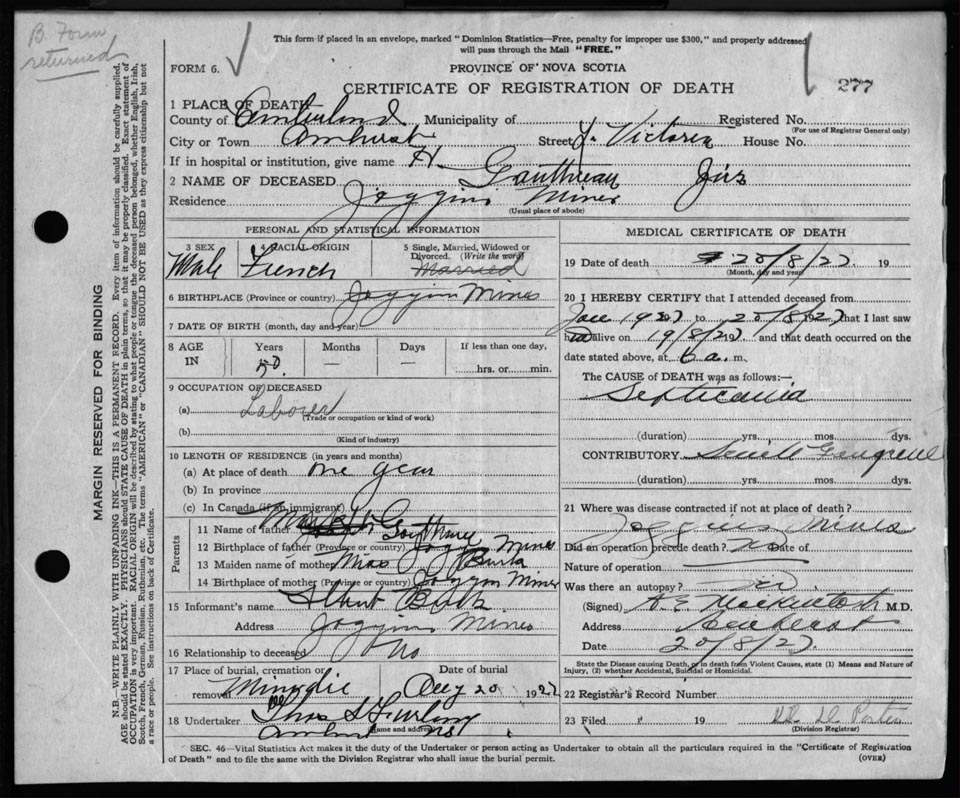 B. Form
returned
This form if placed in an envelope, marked "Dominion Statistics—Free, penalty for improper use $300," and properly addressed
will pass through the Mail "FREE."
FORM 6.
PROVINCE OF NOVA SCOTIA
CERTIFICATE OF REGISTRATION OF DEATH
277
1 PLACE OF DEATH
County of Cumberland Municipality of Registered No.
(For use of Registrar General only)
City or Town Amherst Street Victoria House No.
If in hospital or institution, give name
2 NAME OF DECEASED
Residence Joggins Mines
(Usual place of abode)
PERSONAL AND STATISTICAL INFORMATION
3 SEX
Male
4 RACIAL ORIGIN
French
5 Single, Married, Widowed or
Divorced. (Write the word)
Married
6 BIRTHPLACE (Province or country) Joggin Mines
7 DATE OF BIRTH (month, day and year)
8 AGE
IN
Years
50
Months
—
Days
—
If less than one day,
hrs. or min.
9 OCCUPATION OF DECEASED
(a) Laborer
(Trade or occupation or kind of work)
(b)
(Kind of industry)
10 LENGTH OF RESIDENCE (in years and months)
(a) At place of death one year
(b) In province
(c) In Canada (if an immigrant)
Parents
11 Name of father
12 Birthplace of father (Province or country) Joggin Mines
13 Maiden name of mother Mrs Burk
14 Birthplace of mother (Province or country) Joggin Mines
15 Informant's name Burk
Address Joggins Mines
16 Relationship to deceased No
17 Place of burial, cremation or
removal Minudie
Date of burial
Aug 20 1927
18 Undertaker Thos S Furlong
(Name and address)
Amherst NS
MEDICAL CERTIFICATE OF DEATH
19 Date of death 20/8/27 19
(Month, day and year)
20 I HEREBY CERTIFY that I attended deceased from
to 20/8/1927 that I last saw
alive on 19/8/27 and that death occurred on the
date stated above, at 6 a.m.
The CAUSE of DEATH was as follows:—
Septicaemia
(duration) yrs. mos. dys.
CONTRIBUTORY Senile Gangrene
(duration) yrs. mos. dys.
21 Where was disease contracted if not at place of death?
Joggins Mines
Did an operation precede death? No Date of
Nature of operation
Was there an autopsy?
(Signed) Mackintosh M.D.
Address Amherst
Date 20/8/27
State the Disease causing Death, or in death from Violent Causes, state (1) Means and Nature of
Injury, (2) whether Accidental, Suicidal or Homicidal.
22 Registrar's Record Number
23 Filed 19 Porter
(Division Registrar)
SEC. 46—Vital Statistics Act makes it the duty of the Undertaker or person acting as Undertaker to obtain all the particulars required in the "Certificate of Registration
of Death" and to file the same with the Division Registrar who shall issue the burial permit.
(OVER)
MARGIN RESERVED FOR BINDING
N.B. WRITE PLAINLY WITH UNFADING INK—THIS IS A PERMANENT RECORD. Every item of information should be carefully supplied.
AGE should be stated EXACTLY. PHYSICIANS should STATE CAUSE OF DEATH in plain terms, so that it may be properly classified. Exact statement of
OCCUPATION is very important. RACIAL ORIGIN will be described by stating to what people or tongue the deceased person belonged, whether English, Irish,
Scotch, French, German, Russian, Ruthenian, etc. The terms "AMERICAN" or "CANADIAN" SHOULD NOT BE USED as they express citizenship but not
a race or people. See instructions on back of Certificate.